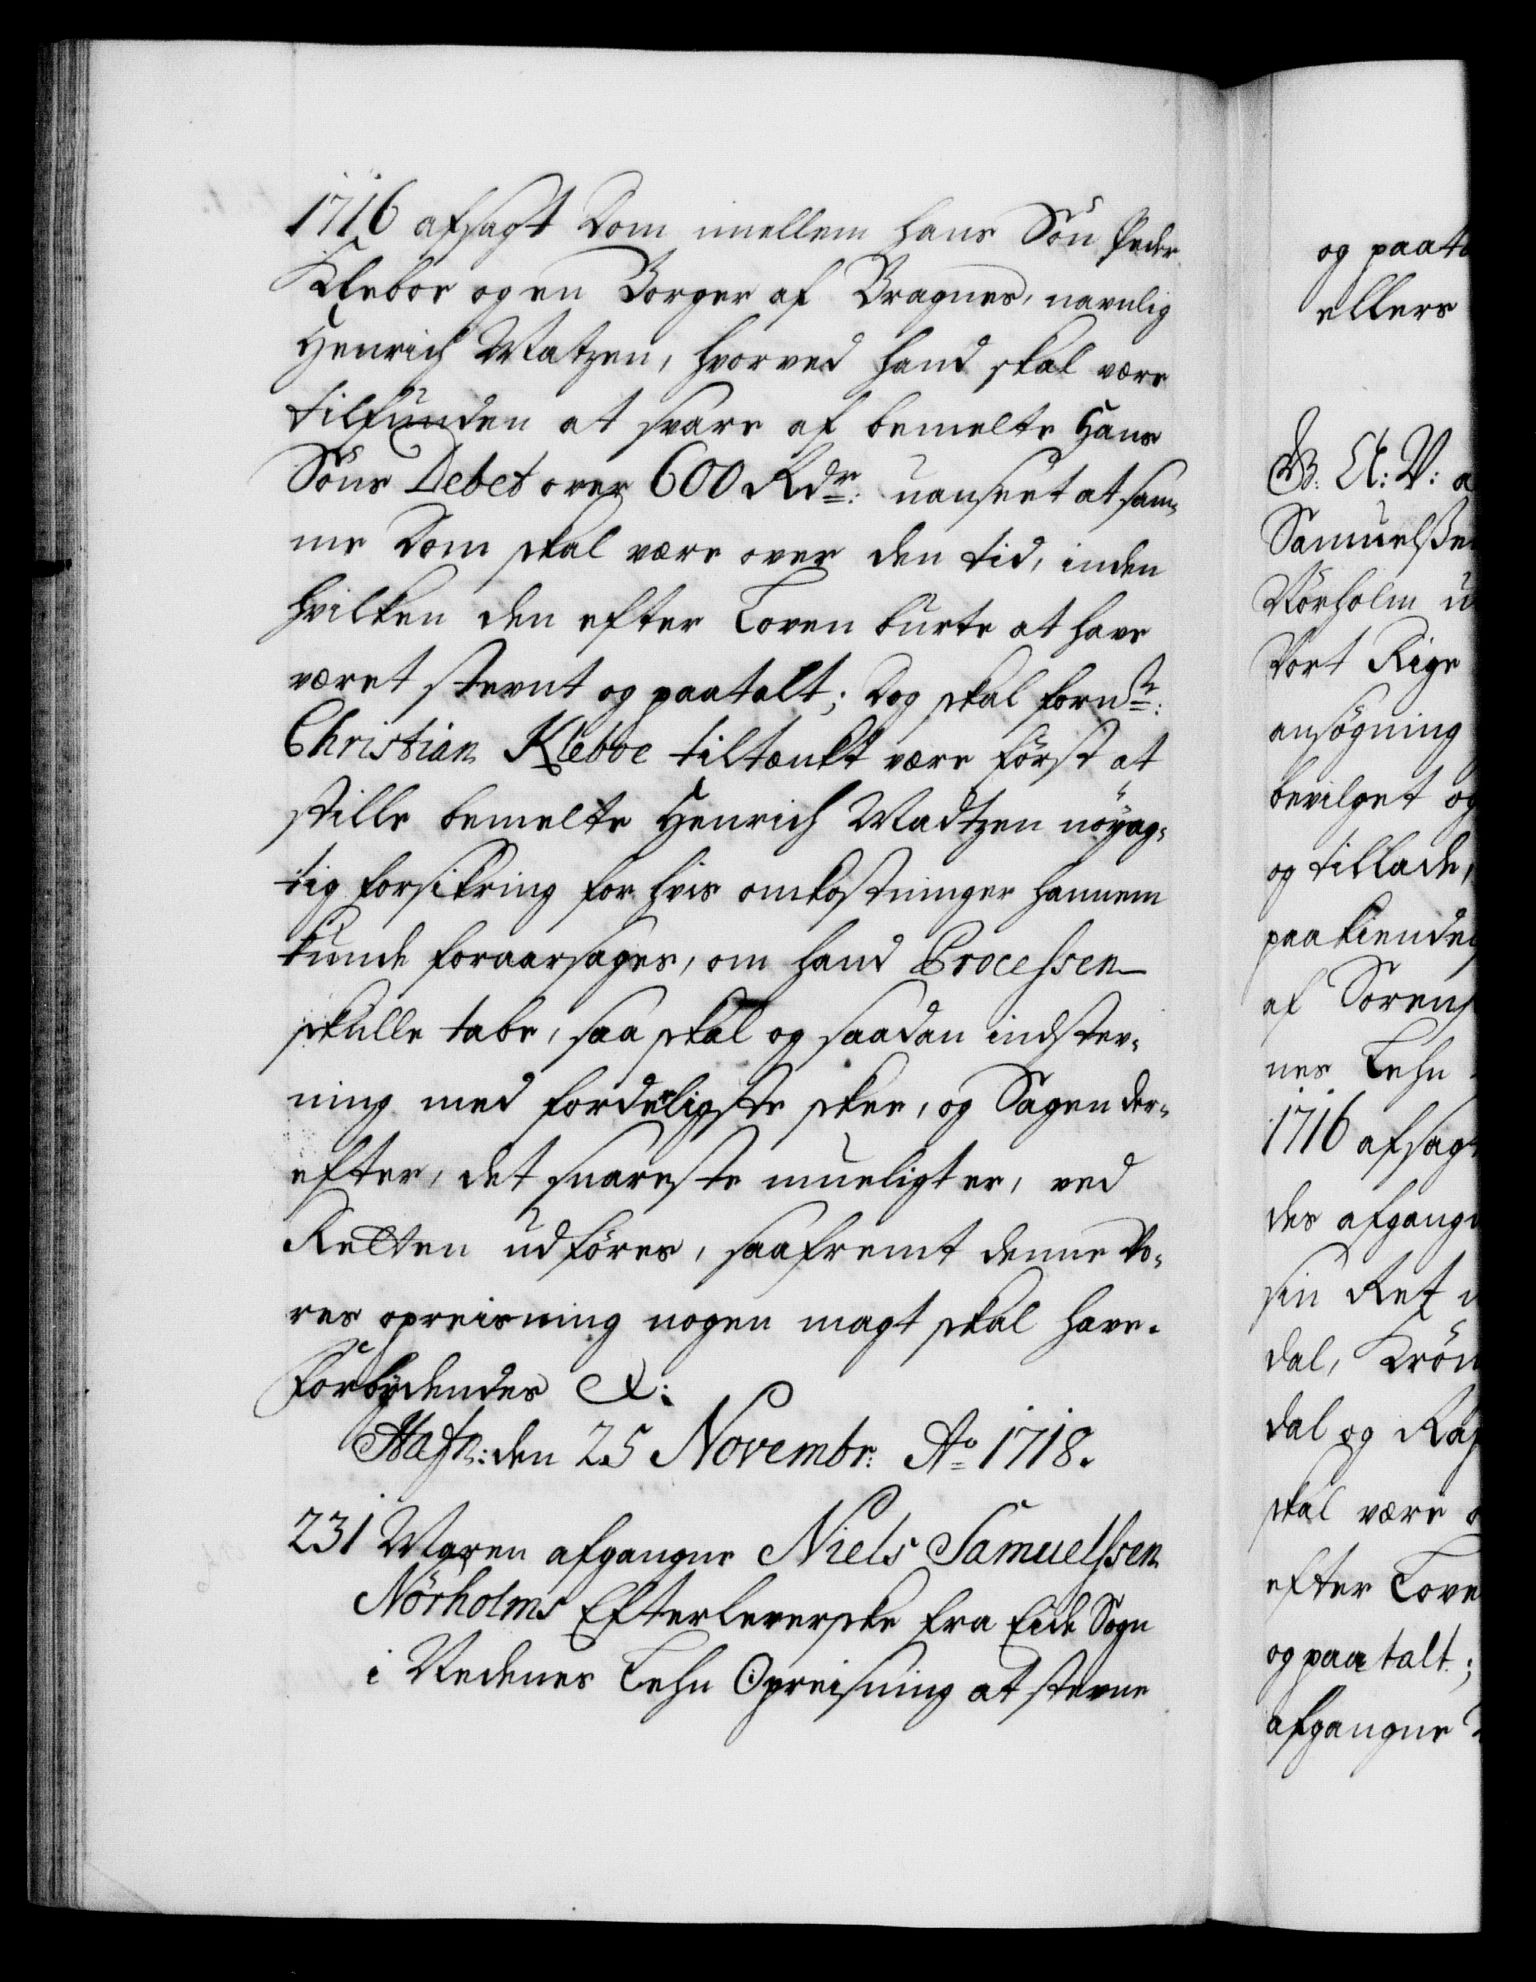 1716 afsagt Dom imellem hans Sön Peder
Kleboe og en Borger af Bragnes, navnlig
Henrich Matzen, hvorved hand skal være
tilfunden at svare af bemelte Hans
Söns Debet over 600 Rdr: uanseet at sam-
me Dom skal være over den tid, inden
hvilken den efter Loven burte at have
været stevnt og paatalt; Dog skal fornte:
Christian Kleboe tiltænkt være först at
stille bemelte Henrich Madtzen nöyag-
tig forsikring for hvis omkostninger hannem
kunde foraarsages, om hand Processen
skulle tabe, saa skal og saadan indstev-
ning med forderligste skee, og Sagen der-
efter, det snareste mueligt er, ved
Retten udföres, saafremt denne Vo-
res opreisning nogen magt skal have.
Forbydendes &:
Hafn: den 25 Novembr: Ao 1718.
231 Maren afgangne Niels Samuelssen
Nörholms Efterleverske fra Eide Sogn
i Nedenes Lehn Opreisning at stevne
og paat
ellers
G. A: V: a
Samuelsse
Nörholm u
Vort Rige
ansögning
bevilget og
og tillade,
paakiende
af Sorens
nes Lehn
1716 afsag
des afgang
sin Ret
dal, Krön
dal og Ra
skal være
efter Love
og paatalt;
afgangne